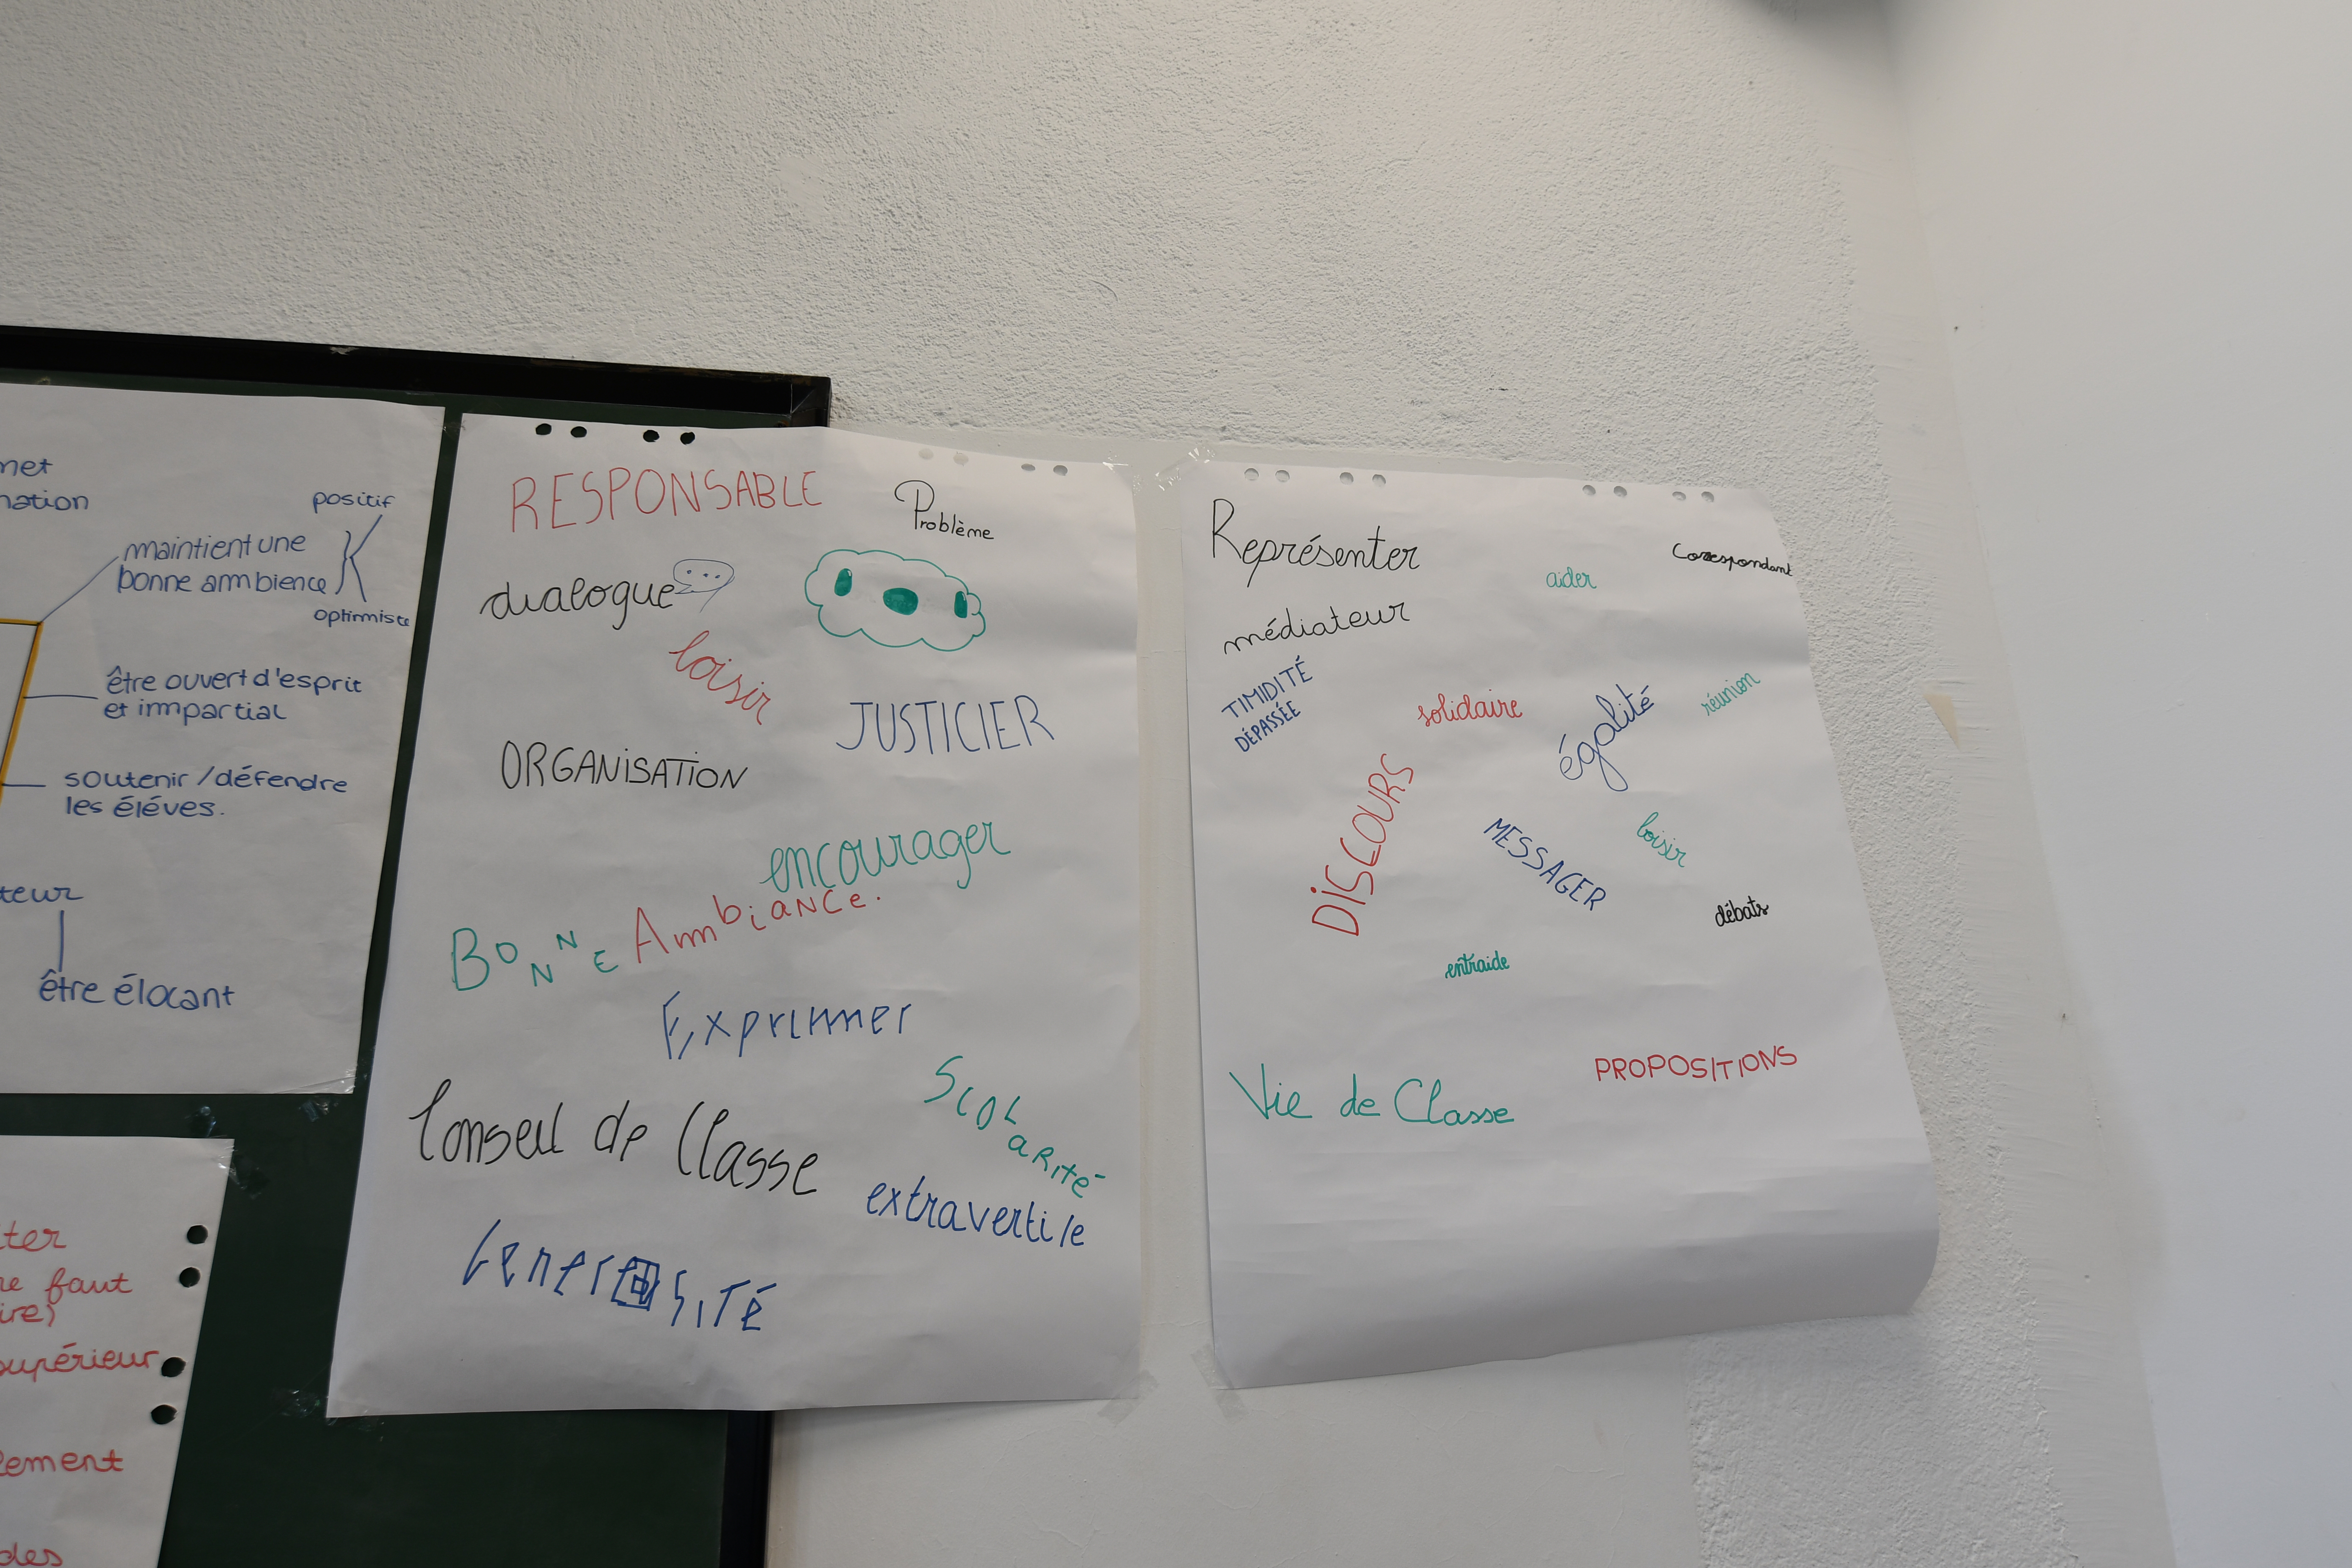 positif
maintient une
bonne ambience
optimiste
être ouvert d'esprit
et impartial
soutenir / défendre
les éléves.
être élocant
faut
supérieur
des
RESPONSABLE
Problème
dialogue
loisir
JUSTICIER
ORGANISATION
encourager
BONNE Ambiance.
Exprimer
Conseil de Classe
SCOLaRité
extraverti/e
GenerOSITÉ
Représenter
aider
Correspondant
médiateur
TIMIDITÉ
DÉPASSÉE
solidaire
égalité
réunion
DISCOURS
MESSAGER
loisir
débats
entraide
PROPOSITIONS
Vie de Classe